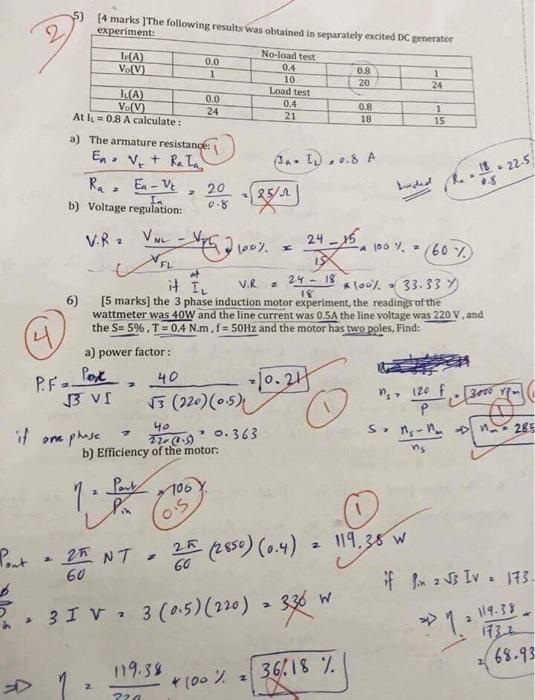 2
5) [4 marks ]The following results was obtained in separately excited DC generator
experiment:
No-load test
IF(A) 0.0 0.4 0.8 1
Vo(V) 1 10 20 24
Load test
IL(A) 0.0 0.4 0.8 1
Vo(V) 24 21 18 15
At IL = 0.8 A calculate :
a) The armature resistance: 1
Ea = Vt + Ra Ia
Ia = IL = 0.8 A
Ra = Ea - Vt / Ia = 20 / 0.8 = 25 Ω
Loaded Ra = 18 / 0.8 = 22.5
b) Voltage regulation:
V.R = VNL - VFL / VFL * 100% = 24 - 15 / 15 * 100 % = 60 %
if at IL V.R = 24 - 18 / 18 * 100% = 33.33 %
6) [5 marks] the 3 phase induction motor experiment, the readings of the
wattmeter was 40W and the line current was 0.5A the line voltage was 220 V , and
the S= 5% , T = 0.4 N.m , f = 50Hz and the motor has two poles, Find:
4
a) power factor :
P.F = / √3 VI = 40 / √3 (220)(0.5) = 0.21
1
ns = 120 f / P = 3000 rpm
if one phase = 40 / 220(0.5) = 0.363
S = ns - nm / ns ⇒ nm = 285
1
b) Efficiency of the motor:
η = Pout / Pin * 100 %
0.5
1
Pout = 2π / 60 NT = 2π / 60 (2850) (0.4) = 119.38 W
if Pin = √3 IV = 173.
= 3 I V = 3 (0.5)(220) = 330 W
⇒ η = 119.38 / 173.2
= 68.93
⇒ η = 119.38 / 330 * 100 % = 36.18 %